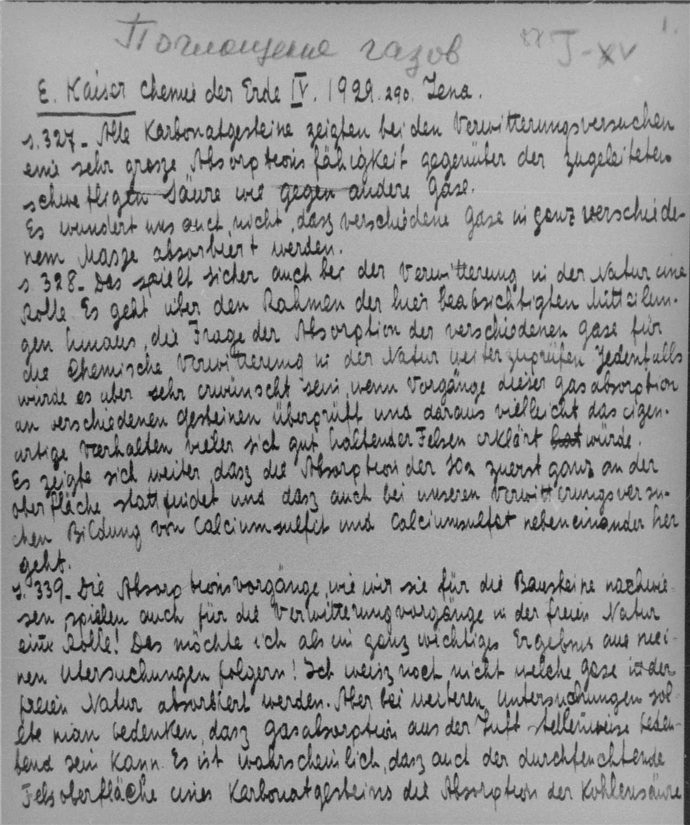 Поглощение газов
1.
E. Kaiser Chemie der Erde IV. 1929. 290. Jena.
s. 327 - Alle Karbonatgesteine zeigten bei den Verwitterungsversuchen
eine sehr grosze Absorptionsfähigkeit gegenüber der zugeleiteten
schwefligen Säure wie gegen andere Gase.
Es wundert uns auch nicht, dasz verschiedene Gase in ganz verschiede-
nem Masze absorbiert werden.
s 328 - Das spielt sicher auch bei der Verwitterung in der Natur eine
Rolle. Es geht über den Rahmen der hier beabsichtigten Mitteilun-
gen hinaus, die Frage der Absorption der verschiedenen Gase für
die Chemische Verwitterung in der Natur weiter zu prüfen. Jedenfalls
würde es aber sehr erwünscht sein, wenn Vorgänge dieser Gasabsorption
an verschiedenen Gesteinen überprüft und daraus vielleicht das eigen-
artige Verhalten vieler sich gut haltender Felsen erklärt würde.
Es zeigte sich weiter, dasz die Absorption der SO2 zuerst ganz an der
Oberfläche stattfindet und dasz auch bei unseren Verwitterungsversu-
chen Bildung von Calciumsulfit und Calciumsulfat nebeneinander her
geht.
s. 339 - Die Absorptionsvorgänge, wie wir sie für die Bausteine nachwie-
sen spielen auch für die Verwitterungvorgänge in der freien Natur
eine Rolle! Das möchte ich als ein ganz wichtiges Ergebnis aus mei-
nen Utersuchungen folgern! Ich weisz noch nicht welche Gase in der
freien Natur absorbiert werden. Aber bei weiteren Untersuchungen soll-
te man bedenken, dasz Gasabsorption aus der Luft stellenweise bedeu-
tend sein kann. Es ist wahrscheinlich, dasz auch der durchfeuchtende
Felsoberfläche eines Karbonatgesteins die Absorption der Kohlensäure